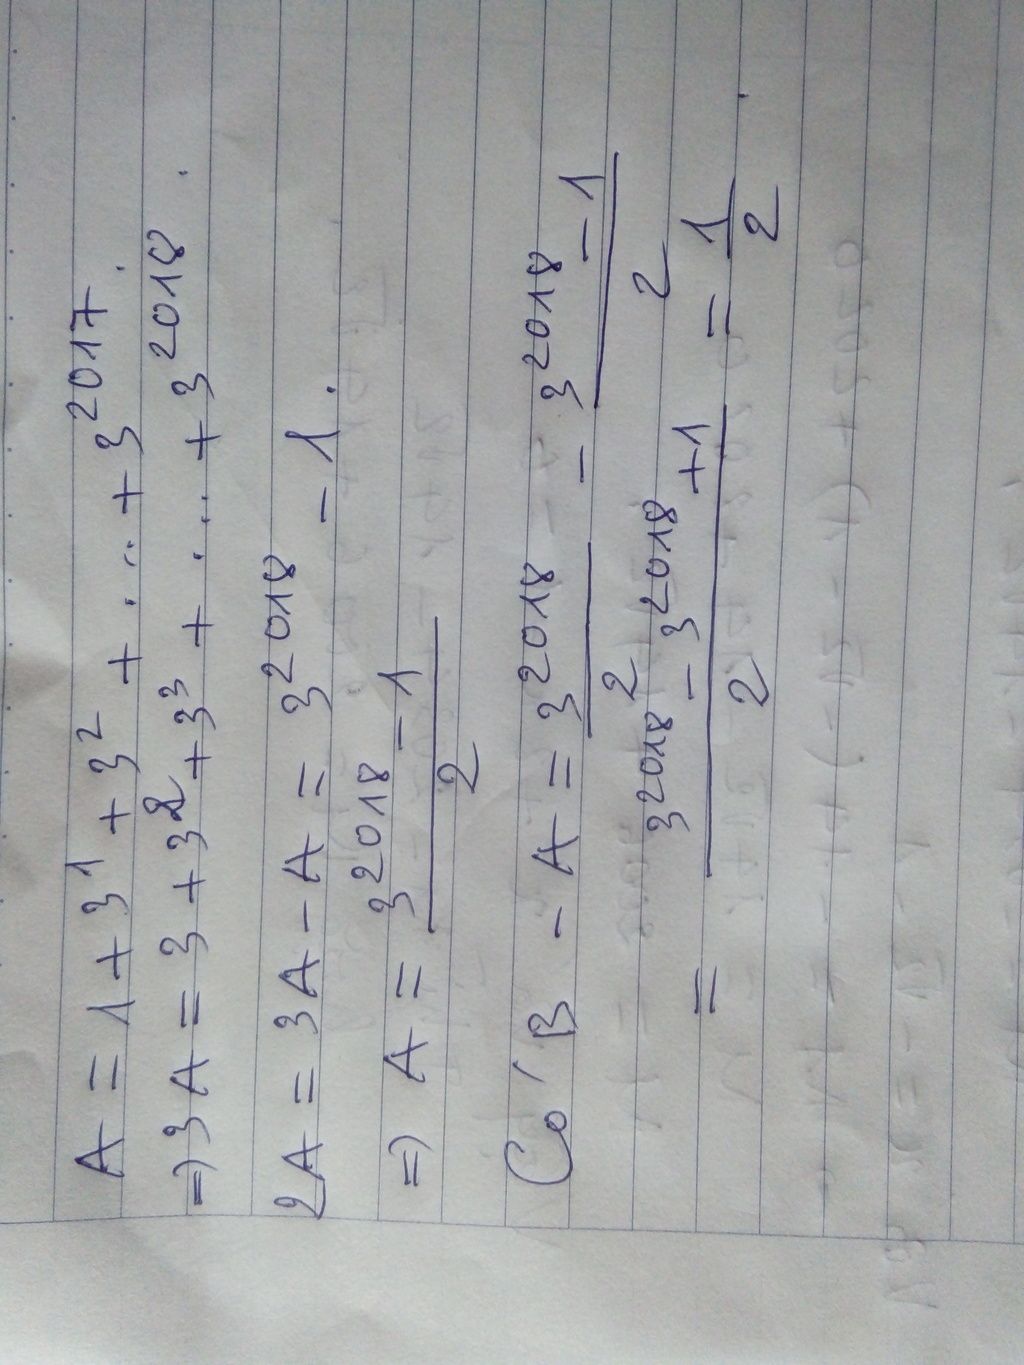 A = 1 + 3¹ + 3² + ... + 3²⁰¹⁷.
=) 3A = 3 + 3² + 3³ + ... + 3²⁰¹⁸.
2A = 3A - A = 3²⁰¹⁸ - 1.
=) A = (3²⁰¹⁸ - 1)/2
Có B - A = 3²⁰¹⁸/2 - (3²⁰¹⁸ - 1)/2
= (3²⁰¹⁸ - 3²⁰¹⁸ + 1)/2 = 1/2.